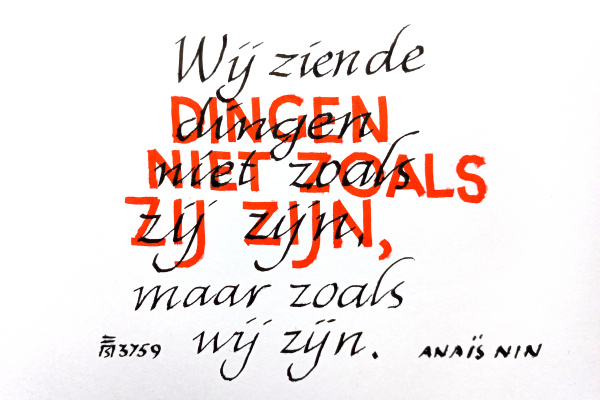 Wij zien de
dingen
DINGEN
niet zoals
NIET ZOALS
zij zijn,
ZIJ ZIJN,
maar zoals
wij zijn.
3759
ANAÏS NIN